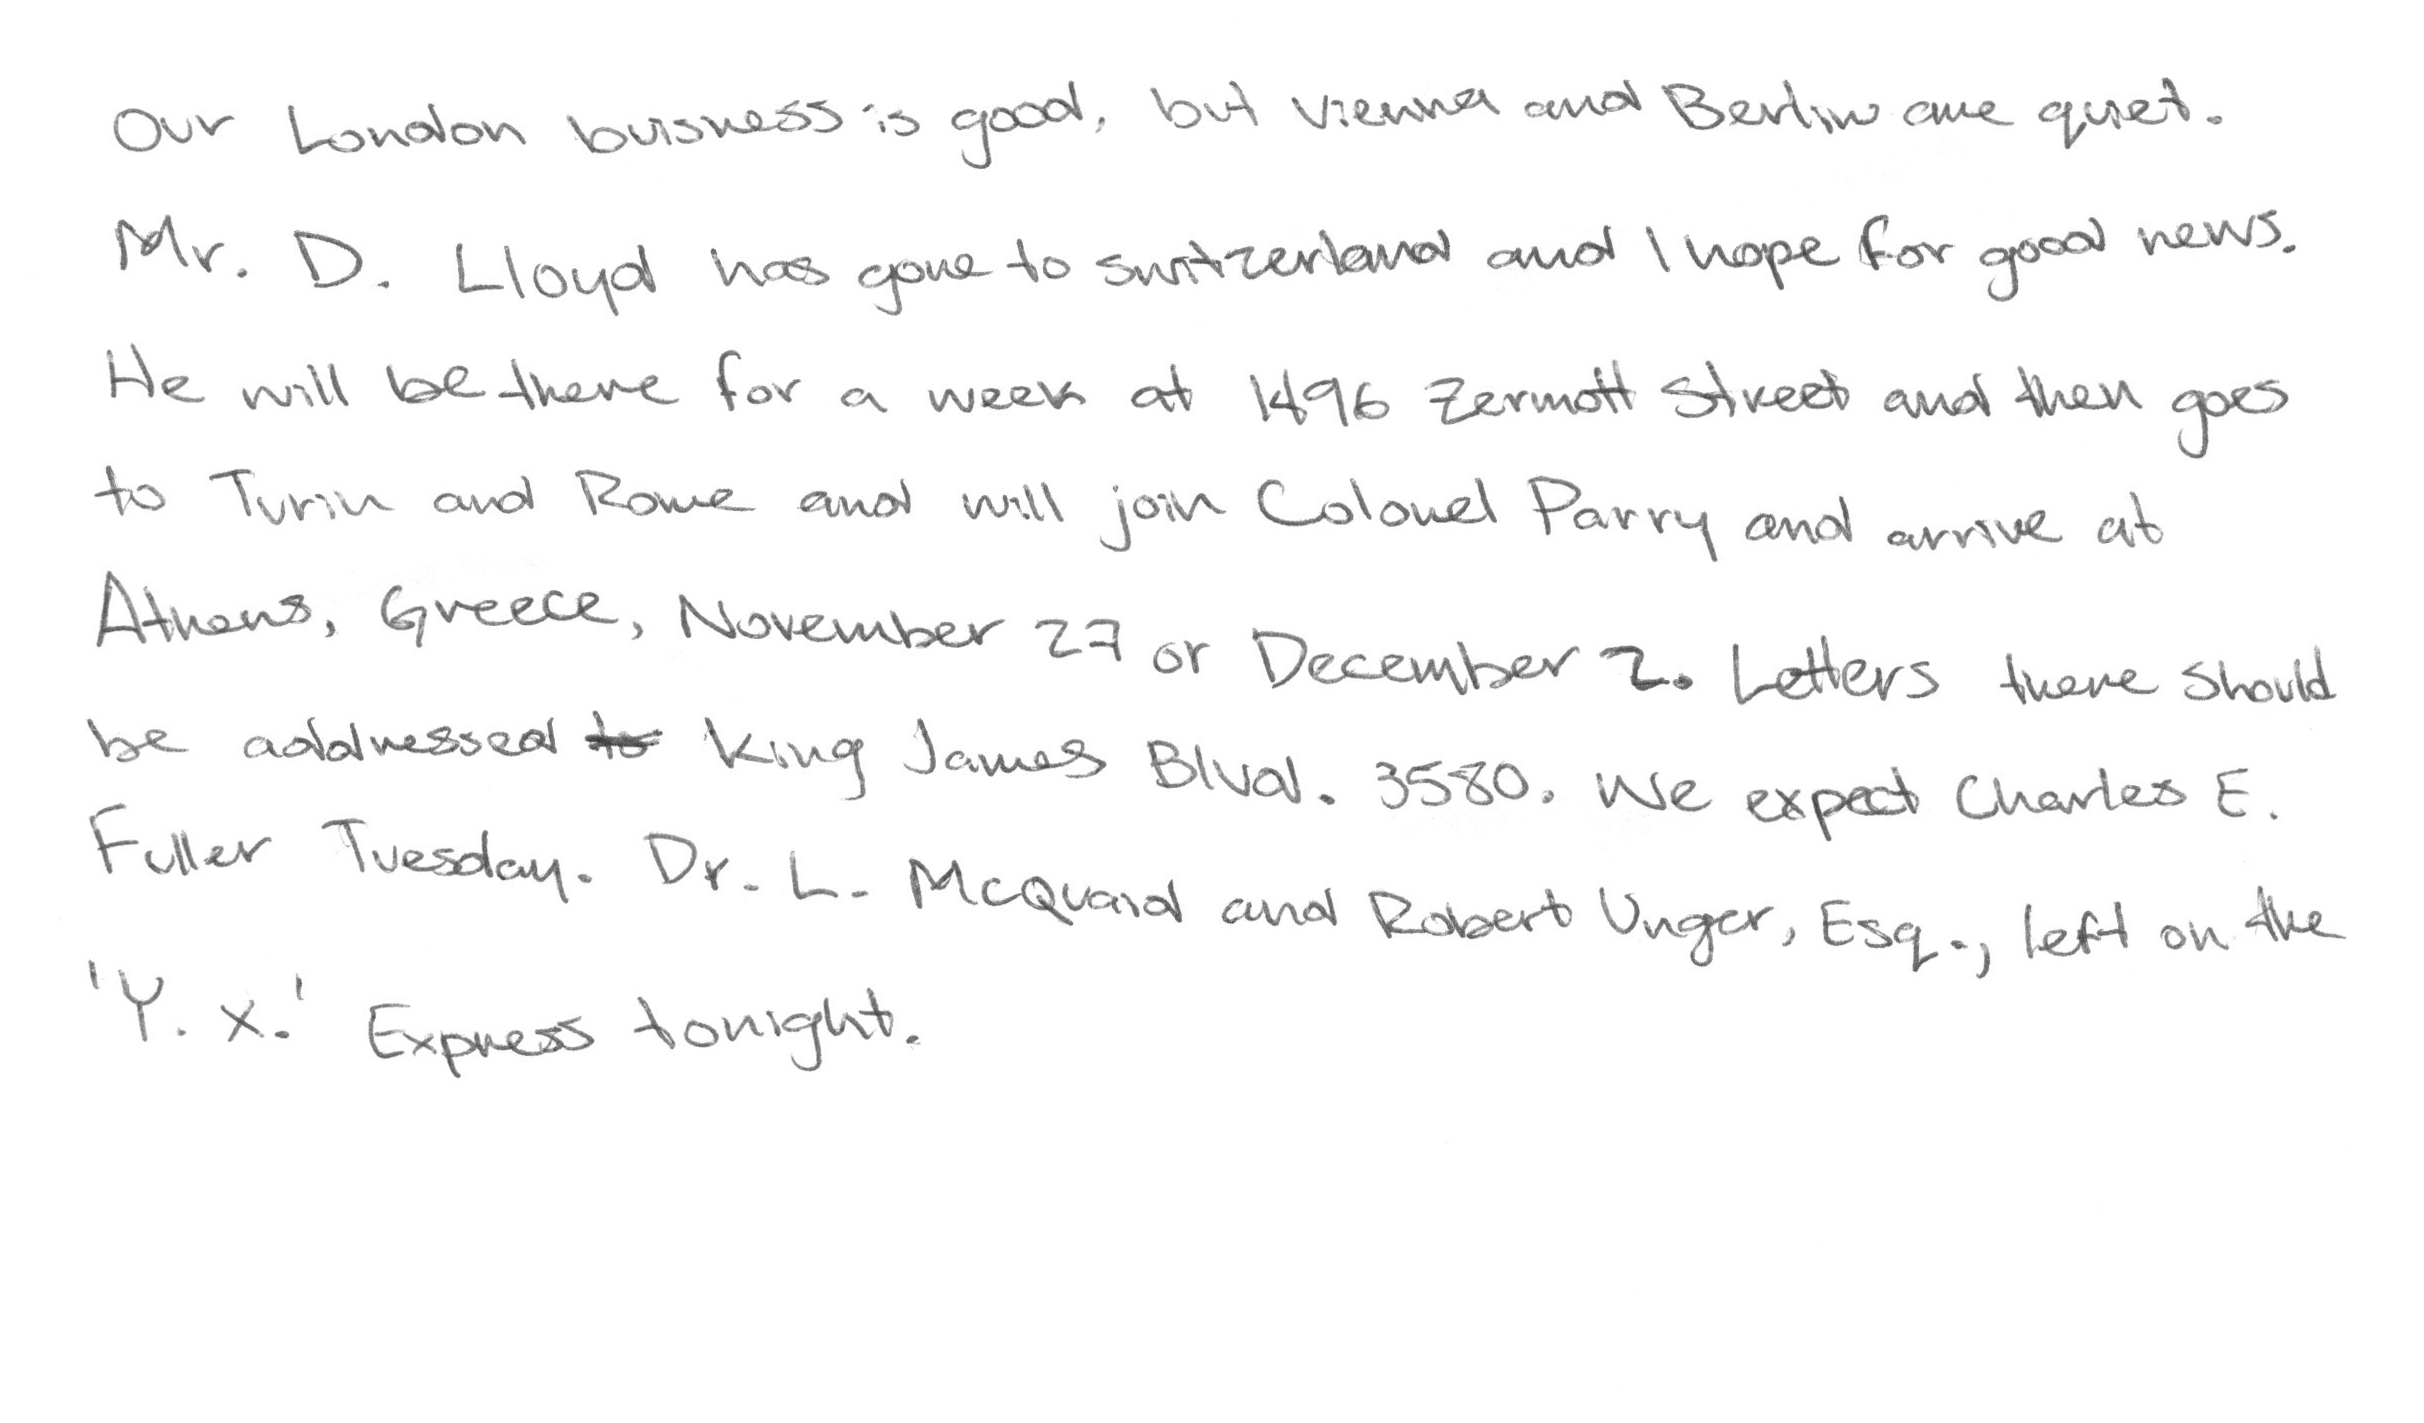 Our London buisness is good, but Vienna and Berlin are quiet.
Mr. D. Lloyd has gone to Switzerland and I hope for good news.
He will be there for a week at 1496 Zermott Street and then goes
to Turin and Rome and will join Colonel Parry and arrive at
Athens, Greece, November 27 or December 2. Letters there should
be addressed to King James Blvd. 3580. We expect Charles E.
Fuller Tuesday. Dr. L. McQuaid and Robert Unger, Esq., left on the
'Y. X.' Express tonight.